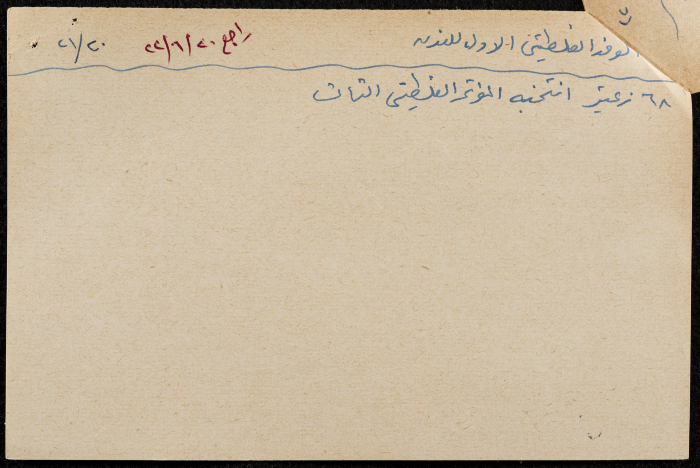 الوفد الفلسطيني الاول للندن راجع ٢٢/٦/٢٠ ٢١/٢٠
٦٨ زعيتر انتخبه المؤتمر الفلسطيني الثالث